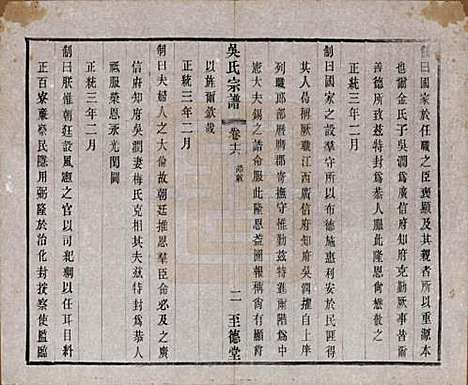 制曰國家於任職之臣褒顯及其親者所以重源本
也爾金氏子吳潤為廣信府知府克勤厥事是皆
善德所致茲特封為恭人服此隆恩尚懋敬哉
正統三年二月
制曰國家之設羣守所以布德施惠利安於民匪得
其人曷稱厥職江西廣信府知府吳潤擢自上庠
列職郎部歷膺郡寄撫守惟勤茲特雨階為中
憲大夫錫之誥命服此隆恩益圖報稱尚前
以旌爾欽哉
正統三年二月
吳氏宗譜
卷十六
誥敕
二
至德堂
制曰夫婦人之大倫故朝廷推恩羣臣命必及之廣
信府知府吳潤妻梅氏克相其夫茲特封為恭人
祗服榮恩永光閨閫
正統三年二月
制曰朕惟朝廷設風憲之官以司紀綱以任耳目料
正百寮棄榮民隱用弼隆於治化封按察使監臨